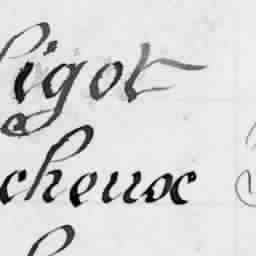 igot
cheux